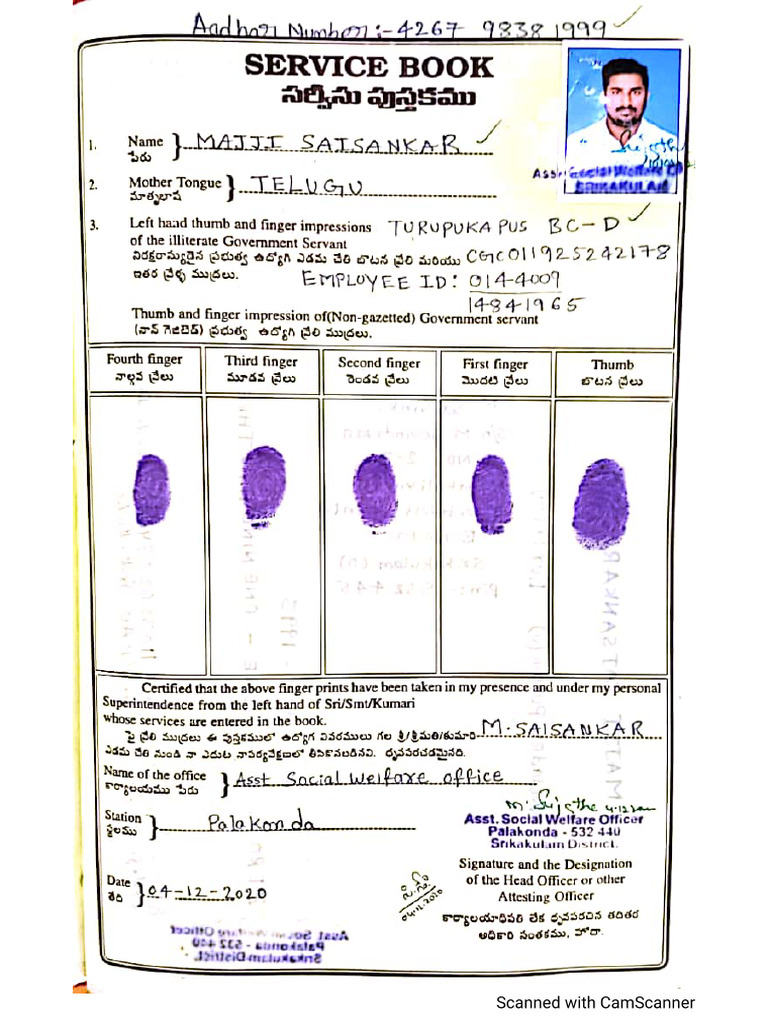 Aadhar Number :- 4267 9838 1999
SERVICE BOOK
సర్వీసు పుస్తకము
1. Name
పేరు
MAJJI SAISANKAR
Asst. Social Welfare
SRIKAKULAM
2. Mother Tongue
మాతృభాష
TELUGU
3. Left hand thumb and finger impressions
of the illiterate Government Servant
TURUPUKAPUS BC-D
నిరక్షరాస్యుడైన ప్రభుత్వ ఉద్యోగి ఎడమ చేతి బొటన వ్రేలి మరియు
ఇతర వ్రేళ్ళ ముద్రలు.
CGC011925242178
EMPLOYEE ID: 0144009
14841965
Thumb and finger impression of(Non-gazetted) Government servant
(నాన్ గెజిటెడ్) ప్రభుత్వ ఉద్యోగి వ్రేలి ముద్రలు.
Fourth finger Third finger Second finger First finger Thumb
నాల్గవ వ్రేలు మూడవ వ్రేలు రెండవ వ్రేలు మొదటి వ్రేలు బొటన వ్రేలు
Certified that the above finger prints have been taken in my presence and under my personal
Superintendence from the left hand of Sri/Smt/Kumari
whose services are entered in the book.
పై వ్రేలి ముద్రలు ఈ పుస్తకములో ఉద్యోగ వివరములు గల శ్రీ/శ్రీమతి/కుమారి M. SAISANKAR
ఎడమ చేతి నుండి నా ఎదుట నాపర్యవేక్షణలో తీసికొనబడినవి. ధృవపరచడమైనది.
Name of the office
కార్యాలయము పేరు
Asst Social Welfare office
Station
స్థలము
Palakonda
Asst. Social Welfare Officer
Palakonda - 532 440
Srikakulam District.
Signature and the Designation
of the Head Officer or other
Attesting Officer
Date
తేది
04-12-2020
04.12.2020
కార్యాలయాధిపతి లేక ధృవపరచిన తదితర
అధికారి సంతకము, హోదా.
Asst Social Welfare Officer
Palakonda - 532 440
Srikakulam District.
Scanned with CamScanner